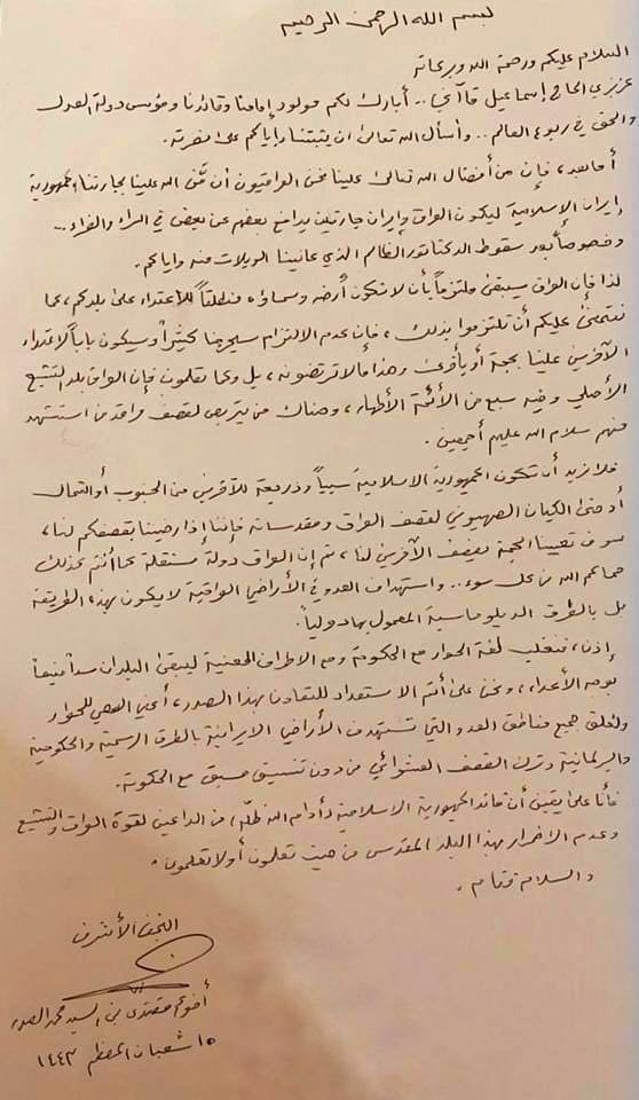 بسم الله الرحمن الرحيم
السلام عليكم ورحمة الله وبركاته
عزيزي الحاج إسماعيل قاآنخيا.. أبارك لكم مولود إمامنا وقائدنا ومؤسس دولة العدل
والحق في ربوع العالم.. وأسأل الله تعالى ان يثبتنا وإياكم على نصرته.
أما بعد، فإن من أفضال الله تعالى علينا نحن العراقيون أن مَنّ الله علينا بجارتنا جمهورية
إيران الإسلامية ليكون العراق وإيران جارتين يدافع بعضهم عن بعض في السراء والضراء..
وخصوصاً بعد سقوط الدكتاتور الظالم الذي عانينا الويلات منه وإياكم.
لذا فإن العراق سيبقى ملتزماً بأن لا تكون أرضه وسماؤه منطلقاً للاعتداء على بلدكم، كما
نتمنى عليكم أن تلتزموا بذلك، فإن عدم الالتزام سيحرجنا كثيراً وسيكون باباً لاعتداء
الآخرين علينا بحجة أو بأخرى وهذا ما لا ترتضونه، بل وكما تعلمون فإن العراق بلد التشيع
الأصلي وفيه سبع من الأئمة الأطهار، وهناك من يتربص لقصف مراقد من استشهد
منهم سلام الله عليهم أجمعين.
فلا نريد أن تكون الجمهورية الاسلامية سبباً وذريعة للآخرين من الجنوب أو الشمال
أو حتى الكيان الصهيوني لقصف العراق ومقدساته فإننا إذا رضينا بقصفكم لنا،
سوف تعيينا الحجة بقصف الآخرين لنا، ثم إن العراق دولة مستقلة كما أنتم كذلك
حماكم الله من كل سوء.. واستهداف العدو في الأراضي العراقية لا يكون بهذه الطريقة
بل بالطرق الدبلوماسية المعمول بها دولياً.
إذن، فنغلب لغة الحوار مع الحكومة ومع الاطراف المعنية ليبقى البلدان سداً منيعاً
بوجه الأعداء، ونحن على أتم الاستعداد للتعاون بهذا الصدد، أعني السعي للحوار
ولغلق جميع مناطق العدو التي تستهدف الأراضي الايرانية بالطرق الرسمية والحكومية
والبرلمانية وترك القصف العشوائي من دون تنسيق مسبق مع الحكومة.
فأنا على يقين أن قائد الجمهورية الاسلامية (أدام الله ظلّه) من الداعين لقوة العراق والتشيع
وعدم الاضرار بهذا البلد المقدس من حيث تعلمون أو لا تعلمون.
والسلام ختام.
النجف الأشرف
أخوكم مقتدى بن السيد محمد الصدر
١٥ شعبان المعظم ١٤٤٣